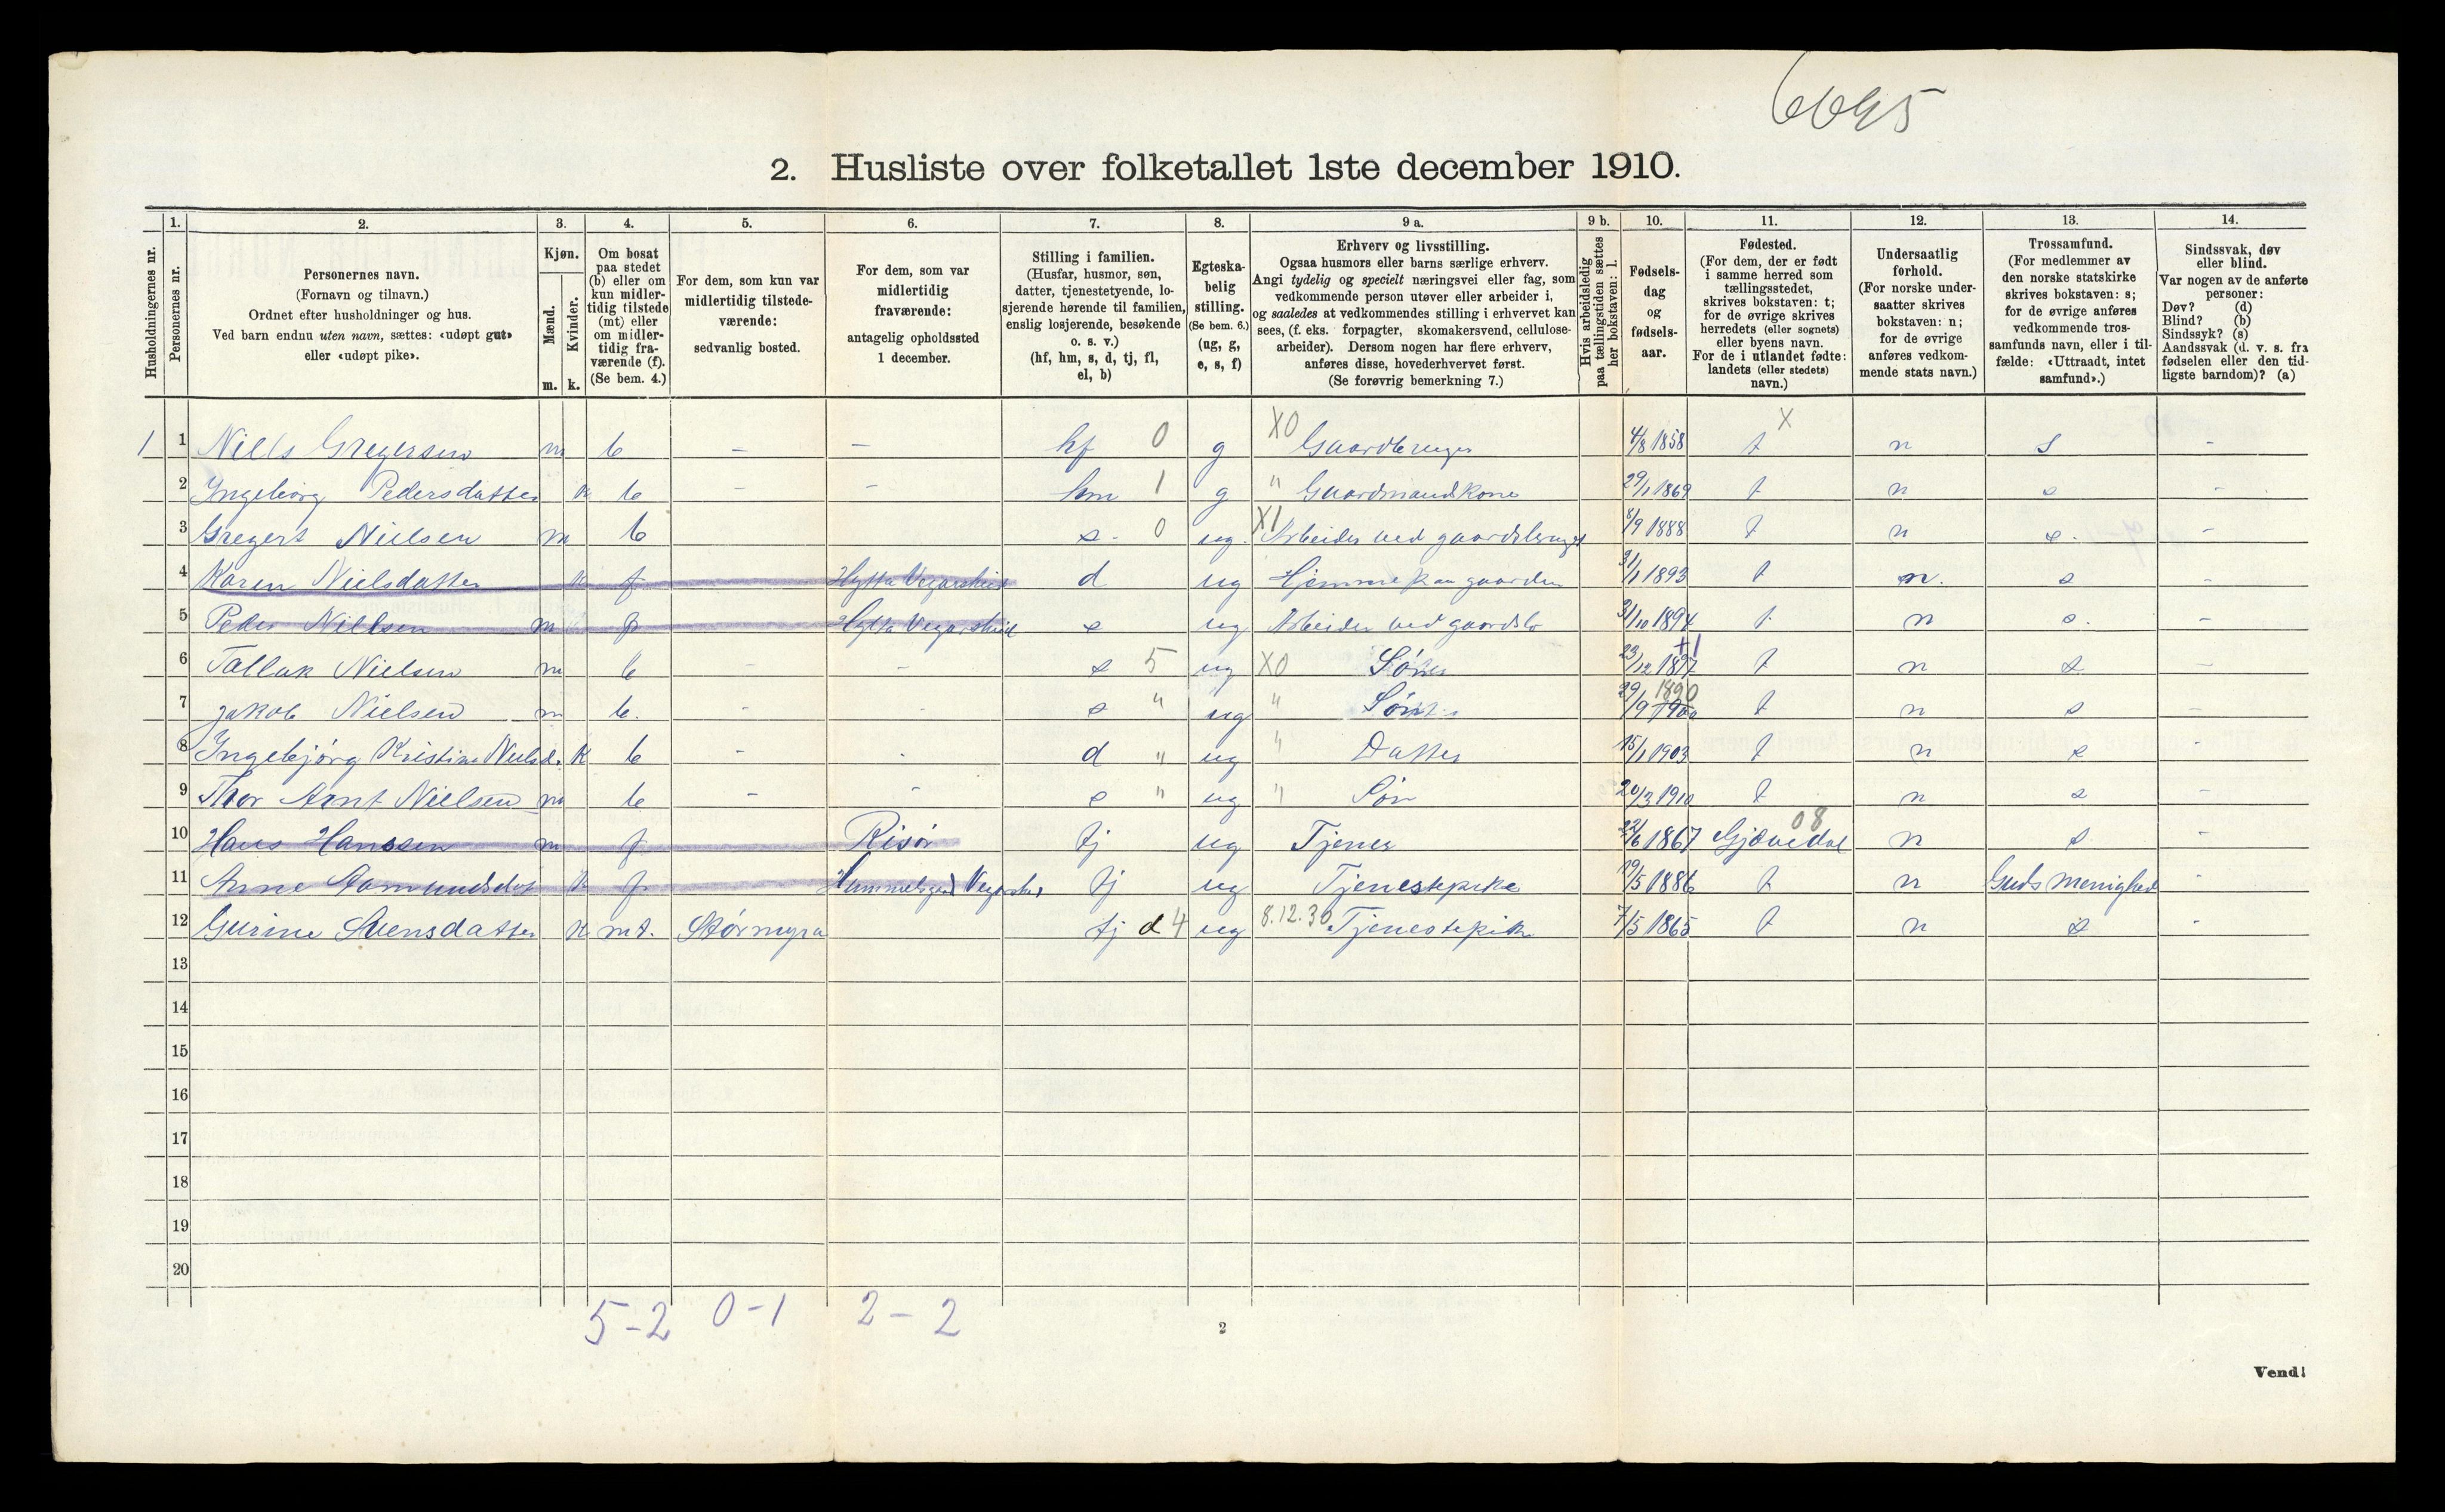 6695
2. Husliste over folketallet 1ste december 1910.
Husholdningernes nr.
1.
Personernes nr.
2.
Personernes navn.
(Fornavn og tilnavn.)
Ordnet efter husholdninger og hus.
Ved barn endnu uten navn, sættes: «udøpt gut»
eller «udøpt pike».
3.
Kjøn.
Mænd.
Kvinder.
m. k.
4.
Om bosat
paa stedet
(b) eller om
kun midler-
tidig tilstede
(mt) eller
om midler-
tidig fra-
værende (f).
(Se bem. 4.)
5.
For dem, som kun var
midlertidig tilstede-
værende:
sedvanlig bosted.
6.
For dem, som var
midlertidig
fraværende:
antagelig opholdssted
1 december.
7.
Stilling i familien.
(Husfar, husmor, søn,
datter, tjenestetyende, lo-
sjerende hørende til familien,
enslig losjerende, besøkende
o. s. v.)
(hf, hm, s, d, tj, fl,
el, b)
8.
Egteska-
belig
stilling.
(Se bem. 6.)
(ug, g,
e, s, f)
9 a.
Erhverv og livsstilling.
Ogsaa husmors eller barns særlige erhverv.
Angi tydelig og specielt næringsvei eller fag, som
vedkommende person utøver eller arbeider i,
og saaledes at vedkommendes stilling i erhvervet kan
sees, (f. eks. forpagter, skomakersvend, cellulose-
arbeider). Dersom nogen har flere erhverv,
anføres disse, hovederhvervet først.
(Se forøvrig bemerkning 7.)
9 b.
Hvis arbeidsledig
paa tællingstiden sættes
her bokstaven: l.
10.
Fødsels-
dag
og
fødsels-
aar.
11.
Fødested.
(For dem, der er født
i samme herred som
tællingsstedet,
skrives bokstaven: t;
for de øvrige skrives
herredets (eller sognets)
eller byens navn.
For de i utlandet fødte:
landets (eller stedets)
navn.)
12.
Undersaatlig
forhold.
(For norske under-
saatter skrives
bokstaven: n;
for de øvrige
anføres vedkom-
mende stats navn.)
13.
Trossamfund.
(For medlemmer av
den norske statskirke
skrives bokstaven: s;
for de øvrige anføres
vedkommende tros-
samfunds navn, eller i til-
fælde: «Uttraadt, intet
samfund».)
14.
Sindssvak, døv
eller blind.
Var nogen av de anførte
personer:
Døv? (d)
Blind? (b)
Sindssyk? (s)
Aandssvak (d. v. s. fra
fødselen eller den tid-
ligste barndom)? (a)
1 1 Niels Gregersen m b - - hf 0 g X0 Gaardbruger 4/8 1858 t X n s -
2 Ingeborg Pedersdatter k b - - hm 1 g " Gaardmandskone 29/1 1869 t n s -
3 Gregert Nielsen m b s. 0 ug. X1 Arbeider ved gaardsbruget 8/9 1888 t n s. -
4 Karen Nielsdatter k f Hytta Vegarshei d ug Hjemme paa gaarden 31/1 1893 t n. s -
5 Peder Nielsen m f Hytta Vegarsheid s ug Arbeider ved gaardsb 31/10 1894 t. n s. -
6 Tallak Nielsen m b - - s 5 ug X0 Søn 23/12 1897 t n s -
7 Jakob Nielsen m b. - - s " ug " Søn 29/9 1900 1890 t n s -
8 Ingebjørg Kristine Nielsd. k b - - d " ug " Datter 15/1 1903 t n s -
9 Thor Arnt Nielsen m b - - s " ug " Søn 20/3 1910 t n s -
10 Hans Hanssen m f Risør tj ug Tjener 22/6 1867 Gjøvedal 08 n s. -
11 Anne Aamundsdat k f Vegarshei tj ug Tjenestepike 19/5 1886 t n Guds menighed -
12 Gurine Svensdatter k mt. Størmyra tj d 4 ug 8.12.30 Tjenestepike 7/5 1865 t n s -
13
14
15
16
17
18
19
20
5-2 0-1 2-2
2
Vend!